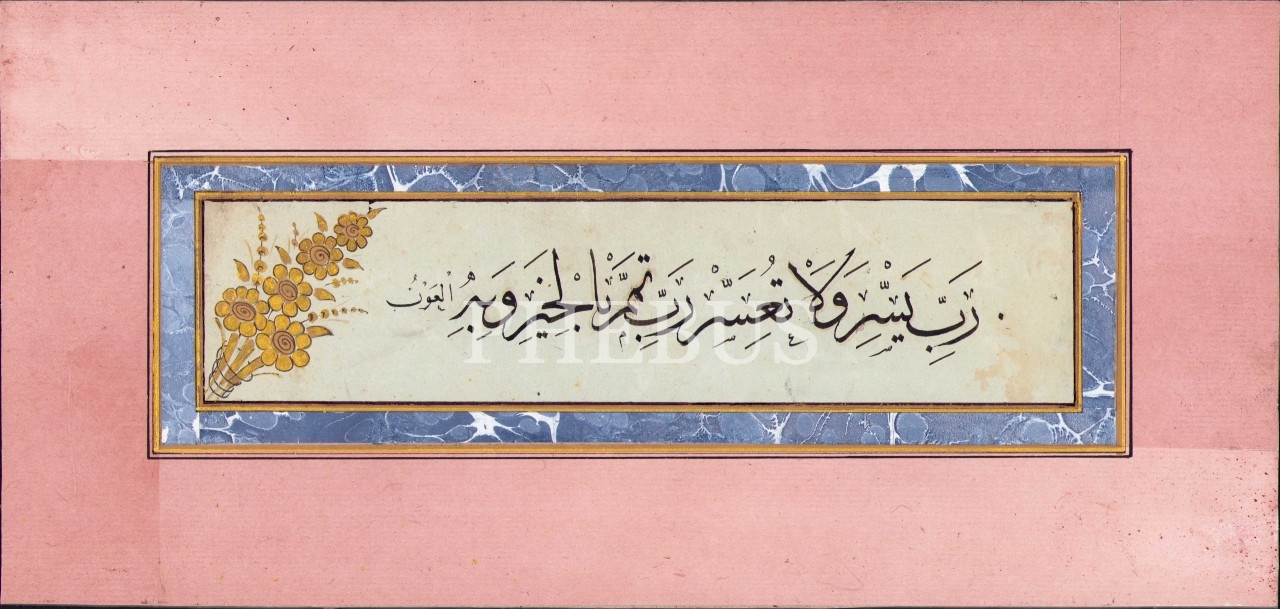 رَبِّ يَسِّرْ وَلَا تُعَسِّرْ رَبِّ تَمِّمْ بِالْخَيْرِ وَبِهِ الْعَوْنُ
PHEBUS